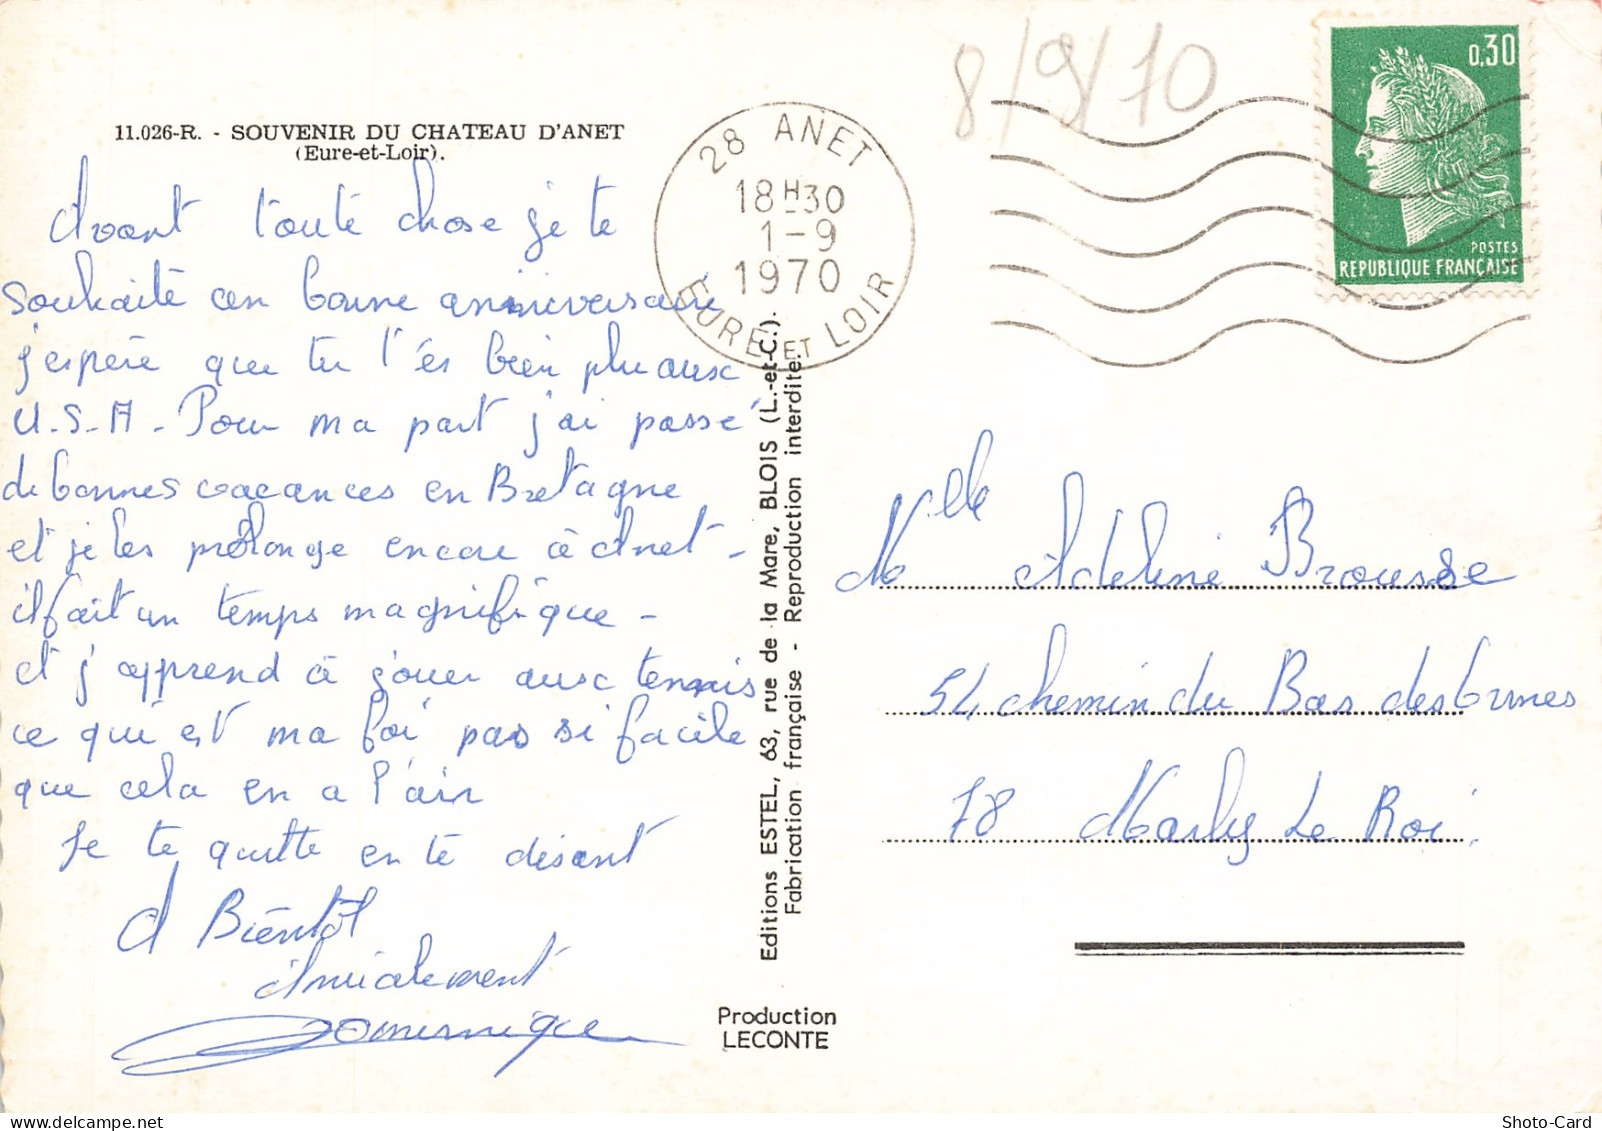 11.026-R. - SOUVENIR DU CHATEAU D'ANET
(Eure-et-Loir).
Avant toute chose je te
souhaite un bonne anniversaire
j'espère que tu t'es bien plu aux
U.S.A. Pour ma part j'ai passé
de bonnes vacances en Bretagne
et je les prolonge encore à Anet -
il fait un temps magnifique -
et j'apprend à jouer aux tennis
ce qui est ma foi pas si facile
que cela en a l'air
Je te quitte en te disant
A Bientôt
Amicalement
Dominique
28 ANET
18H30
1-9
1970
EURE ET LOIR
8/9/70
0,30
POSTES
REPUBLIQUE FRANÇAISE
Editions ESTEL, 63, rue de la Mare, BLOIS (L.-et-C.).
Fabrication française - Reproduction interdite.
Production
LECONTE
Melle Adeline Brousse
54 chemin du Bas des Ormes
78 Marly Le Roi.
Shoto-Card